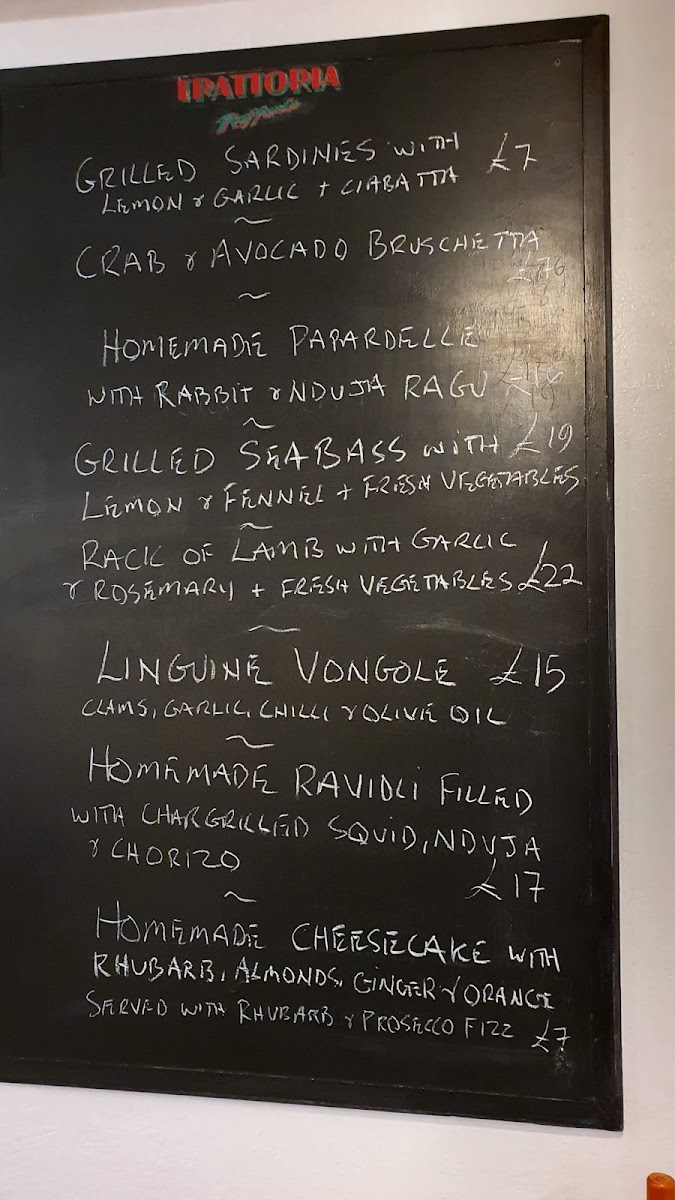 TRATTORIA
GRILLED SARDINES WITH £7
LEMON & GARLIC + CIABATTA
~
CRAB & AVOCADO BRUSCHETTA
~
HOMEMADE PAPARDELLE
WITH RABBIT & NDUJA RAGU
~
GRILLED SEABASS WITH £19
LEMON & FENNEL + FRESH VEGETABLES
~
RACK OF LAMB WITH GARLIC
& ROSEMARY + FRESH VEGETABLES £22
~
LINGUINE VONGOLE £15
CLAMS, GARLIC, CHILLI & OLIVE OIL
~
HOMEMADE RAVIOLI FILLED
WITH CHARGRILLED SQUID, NDUJA
& CHORIZO
£17
~
HOMEMADE CHEESECAKE WITH
RHUBARB, ALMONDS, GINGER & ORANGE
SERVED WITH RHUBARB & PROSECCO FIZZ £7